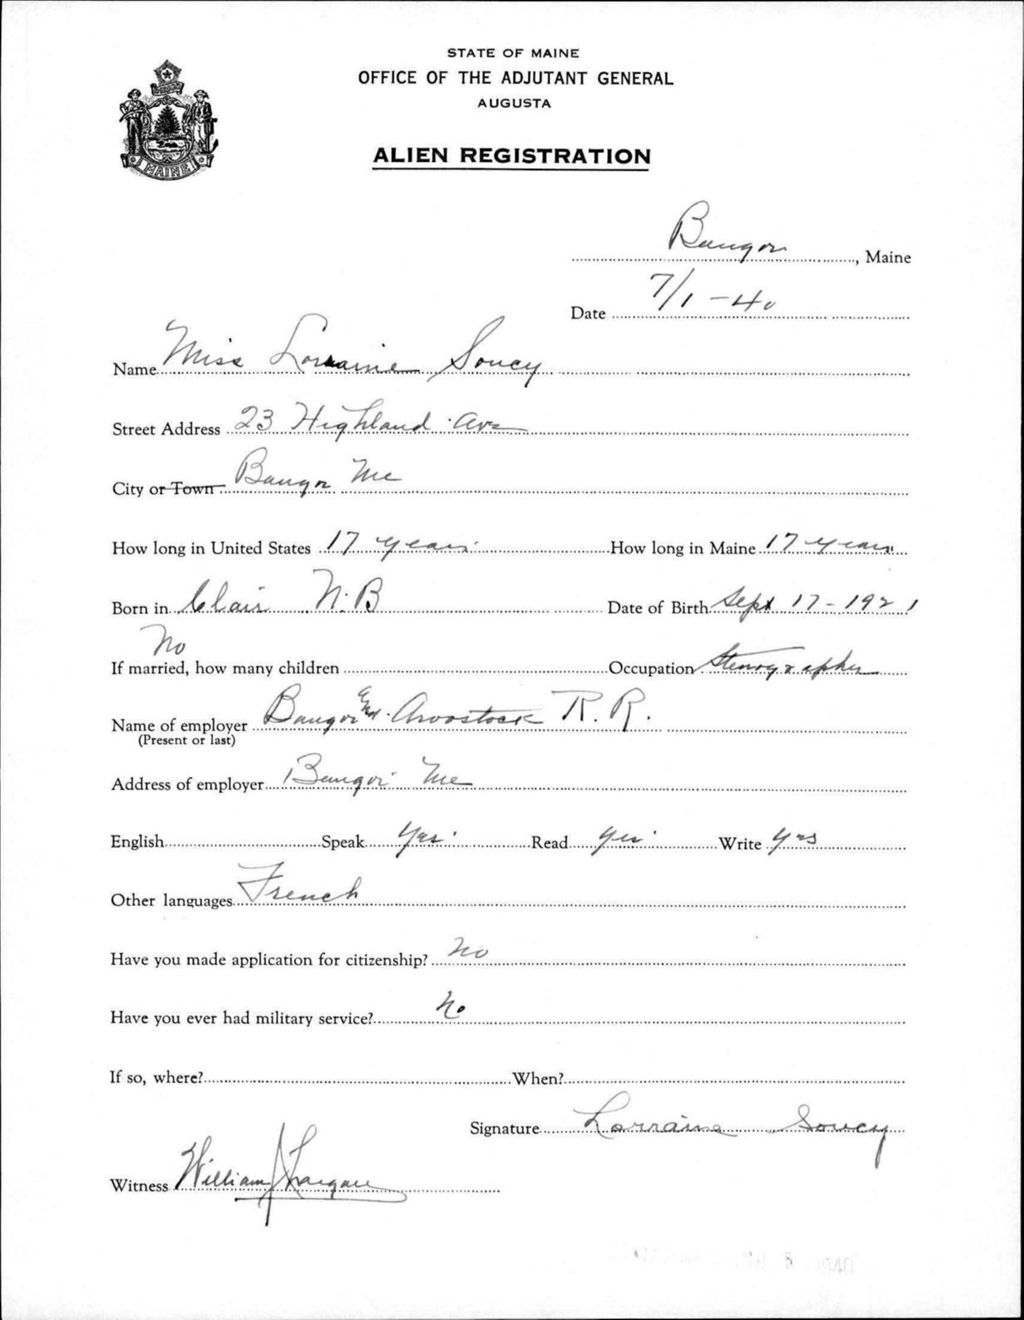 STATE OF MAINE
OFFICE OF THE ADJUTANT GENERAL
AUGUSTA
MAINE
ALIEN REGISTRATION
Bangor, Maine
Date 7/1-40
Name Miss Lorraine Soucy
Street Address 23 Highland Ave
City or Town Bangor Me
How long in United States 17 years How long in Maine 17 years
Born in Clair N.B Date of Birth Sept 17-1921
No
If married, how many children Occupation Stenographer
Name of employer Bangor and Aroostook R.R.
(Present or last)
Address of employer Bangor Me
English Speak Yes Read Yes Write Yes
Other languages French
Have you made application for citizenship? No
Have you ever had military service? No
If so, where? When?
Signature Lorraine Soucy
Witness William J